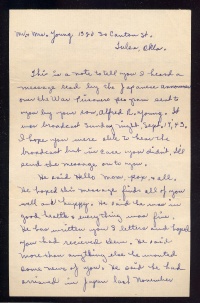 Mr & Mrs. Young 1320 So Canton St.
Tulsa, Okla.
This is a note to tell you I heard a
message read by the Japanese announcer
over the War Prisoners hour sent to
you by your son, Alfred R. Young. It
was broadcast Sunday night, Sept. 19, 43.
I hope you were able to hear the
broadcast but in case you didn't, I'll
send the message on to you.
He said Hello mom, pop, & all.
He hoped this message finds all of you
well and happy. He said he was in
good health & everything was fine.
He has written you 2 letters and hoped
you had recieved them. He said
more than anything else he wanted
some news of you. He said he had
arrived in Japan last November